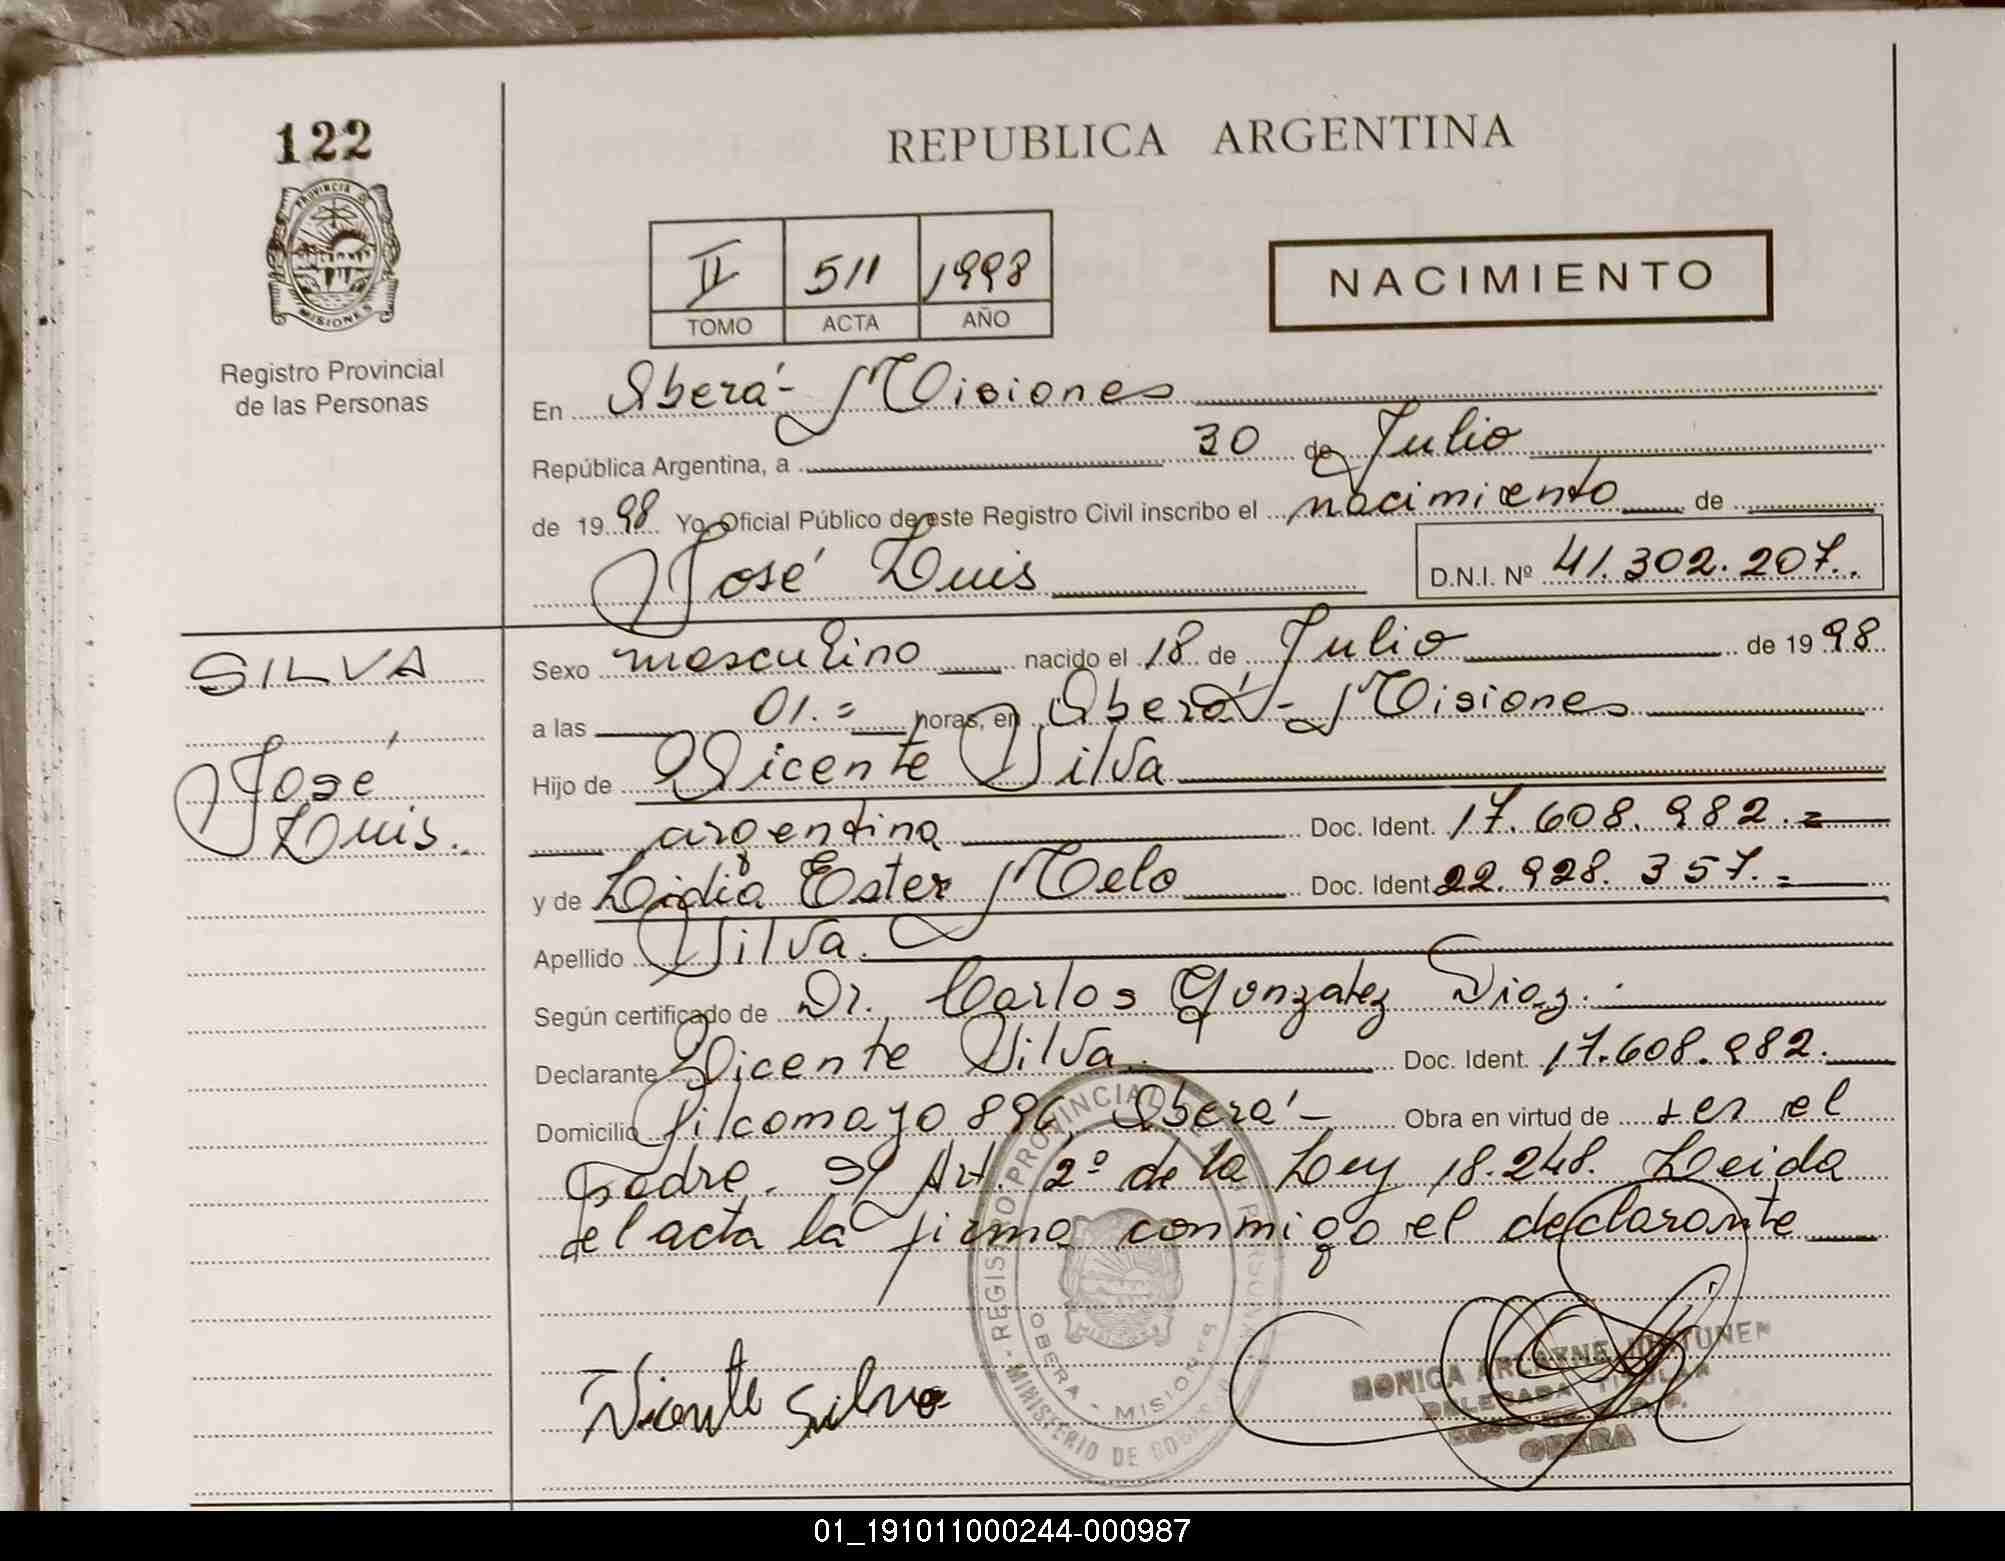 122
PROVINCIA DE
MISIONES
Registro Provincial
de las Personas
REPUBLICA ARGENTINA
II 511 1998
TOMO ACTA AÑO
NACIMIENTO
En Oberá - Misiones
República Argentina, a 30 de Julio
de 1998 Yo Oficial Público de este Registro Civil inscribo el nacimiento de
José Luis D.N.I. Nº 41.302.207.
SILVA
José
Luis.
Sexo masculino nacido el 18 de Julio de 1998
a las 01.= horas, en Oberá - Misiones
Hijo de Vicente Silva
argentino Doc. Ident. 17.608.982.=
y de Lidia Ester Melo Doc. Ident 22.928.357.=
Apellido Silva.
Según certificado de Dr. Carlos Gonzalez Diaz.
Declarante Vicente Silva. Doc. Ident. 17.608.982.
Domicilio Pilcomayo 896, Oberá - Obra en virtud de ser el
Padre. S/ Art. 2º de la Ley 18.248. Leida
el acta la firma conmigo el declarante
REGISTRO PROVINCIAL DE PERSONAS - MINISTERIO DE GOBIERNO
OBERA - MISIONES
Vicente Silva
MONICA
DELEGADA TITULAR
OBERA
01_191011000244-000987